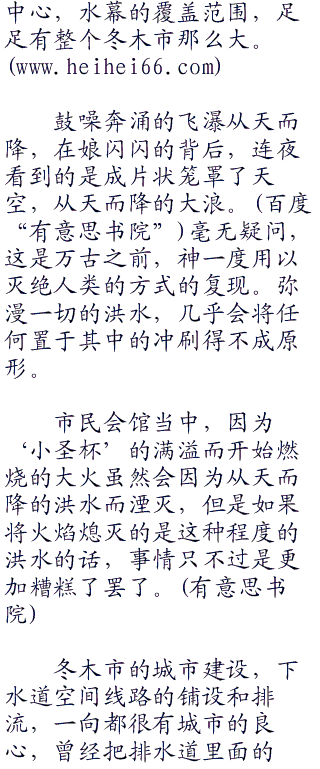 中心，水幕的覆盖范围，足
足有整个冬木市那么大。
(www.heihei66.com)
鼓噪奔涌的飞瀑从天而
降，在娘闪闪的背后，连夜
看到的是成片状笼罩了天
空，从天而降的大浪。(百度
“有意思书院”)毫无疑问，
这是万古之前，神一度用以
灭绝人类的方式的复现。弥
漫一切的洪水，几乎会将任
何置于其中的冲刷得不成原
形。
市民会馆当中，因为
‘小圣杯’的满溢而开始燃
烧的大火虽然会因为从天而
降的洪水而湮灭，但是如果
将火焰熄灭的是这种程度的
洪水的话，事情只不过是更
加糟糕了罢了。(有意思书
院)
冬木市的城市建设，下
水道空间线路的铺设和排
流，一向都很有城市的良
心，曾经把排水道里面的